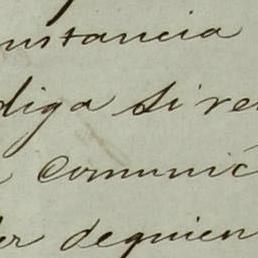 nstancia
diga si re
comunic
er dequien